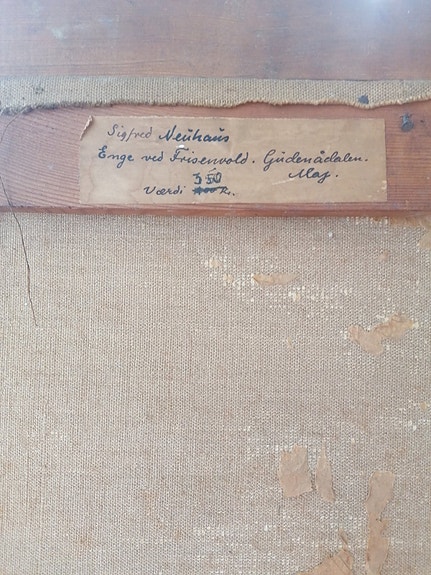 Sigfred Neuhaus
Enge ved Frisenvold. Gudenådalen.
350 Maj.
Værdi 400 Kr.